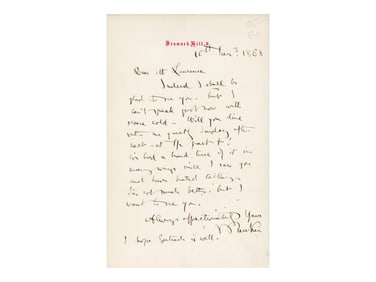 Denmark Hill, S.
10th Jan? 1868
Dear Mr Lawrence.
Indeed I shall be
glad to see you. but I
can't speak just now with
severe cold - Will you dine
with me quietly Sunday after
next. at 1/2 past 4?
I've had a hard time of it in
many ways since I saw you
and have hated talking.
I'm not much better. but I
want to see you.
Always affectionately Yours
J Ruskin
I hope Gertrude is well.